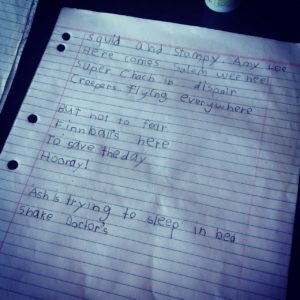 Squid and Stampy Amy Lee
Here comes Salem wee hee!
Super Chach in dispair
Creepers flying everywhere
But not to fear
Finnball's here
To save the day
Hooray!
Ash is trying to sleep in bed
Shake Doctor's